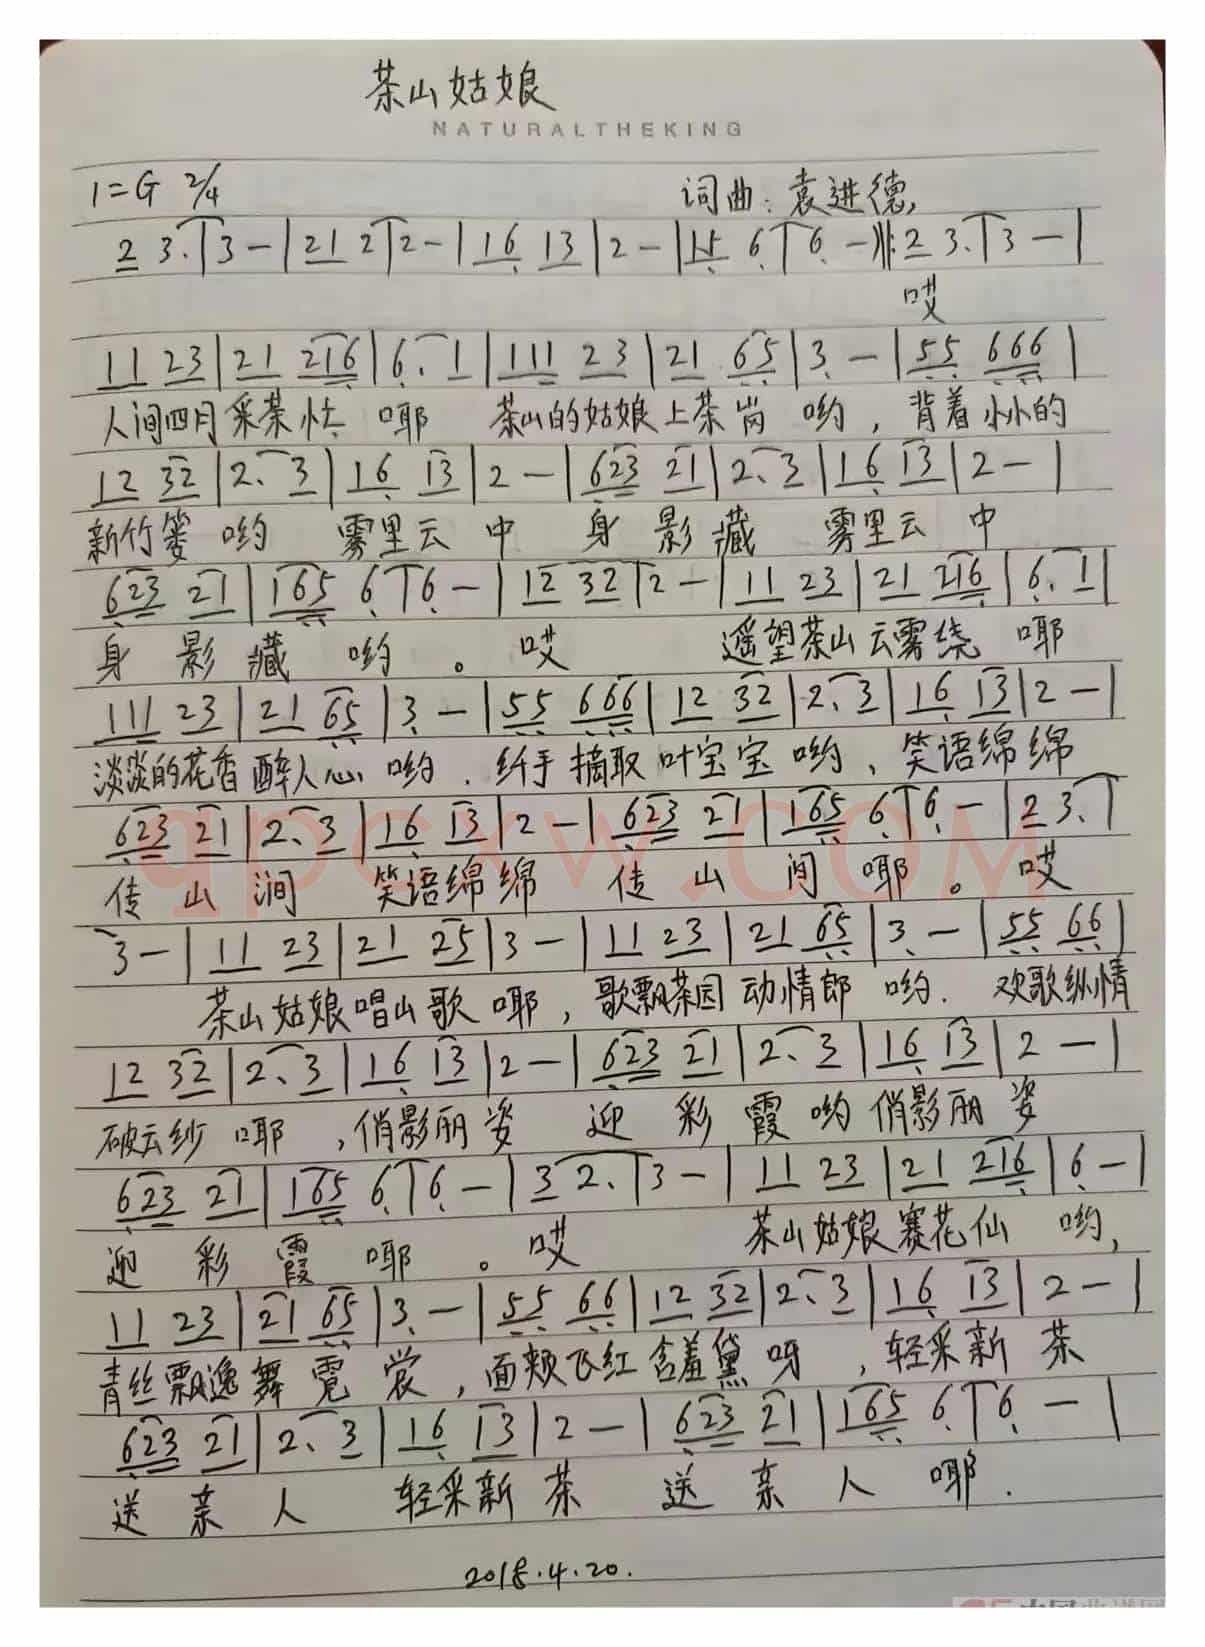 茶山姑娘
NATURALTHEKING
1=G 2/4 词曲：袁进德
2 3.|3-|21 2|2-|16 13|2-|15 6|6-‖:2 3.|3-|
哎
11 23|21 216|6. 1|111 23|21 65|3-|55 666|
人间四月采茶忙 耶 茶山的姑娘上茶岗 哟，背着小小的
12 32|2. 3|16 13|2-|623 21|2. 3|16 13|2-|
新竹篓 哟 雾里云 中 身 影 藏 雾里云 中
623 21|165 6|6-|12 32|2-|11 23|21 216|6. 1|
身 影 藏 哟。哎 遥望茶山云雾绕 耶
111 23|21 65|3-|55 666|12 32|2. 3|16 13|2-|
淡淡的花香醉人心 哟．纤手摘取叶宝宝 哟、笑语绵绵
623 21|2. 3|16 13|2-|623 21|165 6|6-|23.|
传 山 涧 笑语绵绵 传 山 间 耶。哎
3-|11 23|21 25|3-|11 23|21 65|3-|55 66|
茶山姑娘唱山歌 耶，歌飘茶园动情郎 哟．欢歌纵情
12 32|2. 3|16 13|2-|623 21|2. 3|16 13|2-|
破云纱 耶，俏影丽姿 迎 彩 霞 哟 俏影丽姿
623 21|165 6|6-|3 2.|3-|11 23|21 216|6-|
迎 彩 霞 耶。哎 茶山姑娘赛花仙 哟，
11 23|21 65|3-|55 66|12 32|2. 3|16 13|2-|
青丝飘逸舞霓裳，面颊飞红含羞黛呀，轻采新 茶
623 21|2. 3|16 13|2-|623 21|165 6|6-|
送 亲 人 轻采新 茶 送 亲 人 耶．
2018.4.20.
qpcxw.COM